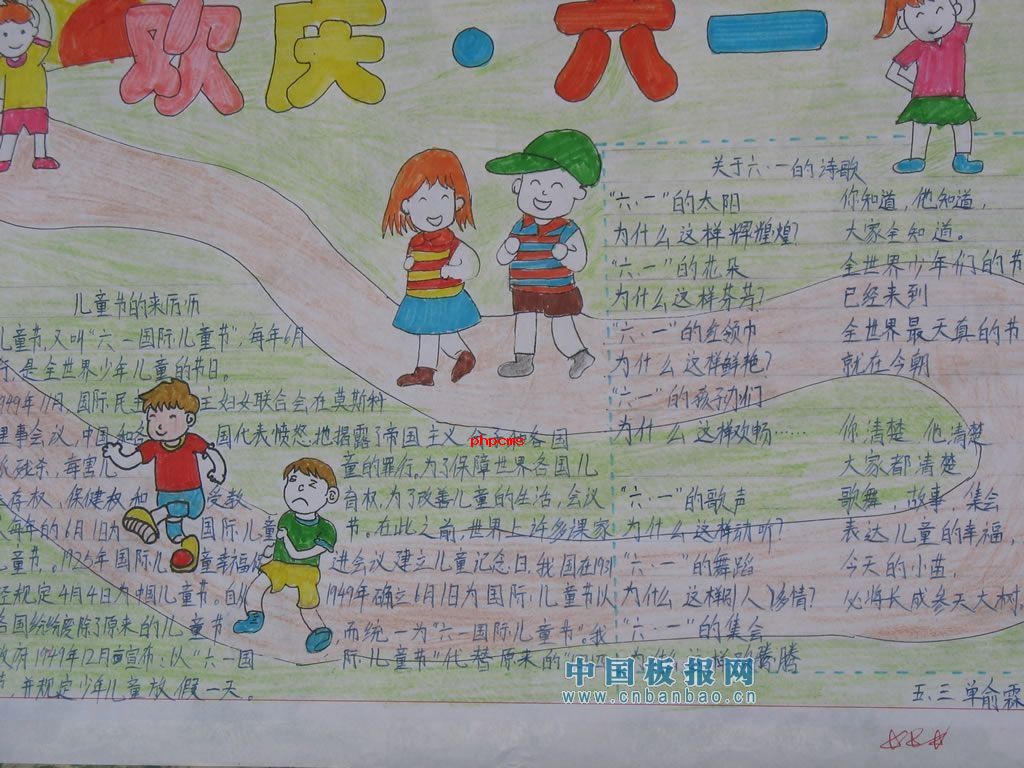 欢庆·六一
儿童节的来历
儿童节,又叫“六一国际儿童节”,每年6月
是全世界少年儿童的节日。
1949年11月,国际民主妇女联合会在莫斯科
理事会议,中国和各国代表愤怒地揭露了帝国主义
各国
残杀、毒害儿童的罪行。为了保障世界各国儿
存权、保健权和受教育权,为了改善儿童的生活,会议
每年的6月1日为国际儿童节。在此之前,世界上许多
儿童节。1925年国际儿童幸福
进会议建立儿童记念日,我国在193
规定4月4日为中国儿童节。自从1949年确立6月1日为国际儿童节以
各国纷纷废除了原来的儿童节而统一为“六一国际儿童节”。我
政府1949年12月宣布:以“六一国际儿童节”代替原来的“
并规定少年儿童放假一天。
关于六·一的诗歌
“六·一”的太阳
为什么这样辉煌?
“六·一”的花朵
为什么这样芬芳?
“六·一”的红领巾
为什么这样鲜艳?
“六·一”的孩子们
为什么这样欢畅……
“六·一”的歌声
为什么这样动听?
“六·一”的舞蹈
为什么这样多情?
“六·一”的集会
为什么这样
腾腾
你知道,他知道,
大家全知道。
全世界少年们的节
已经来到
全世界最天真的节
就在今朝
你清楚 他清楚
大家都清楚
歌舞,故事,集会
表达儿童的幸福,
今天的小苗,
必将长成参天大树。
五、三 单俞霖
phpcms
中国板报网
www.cnbanbao.cn